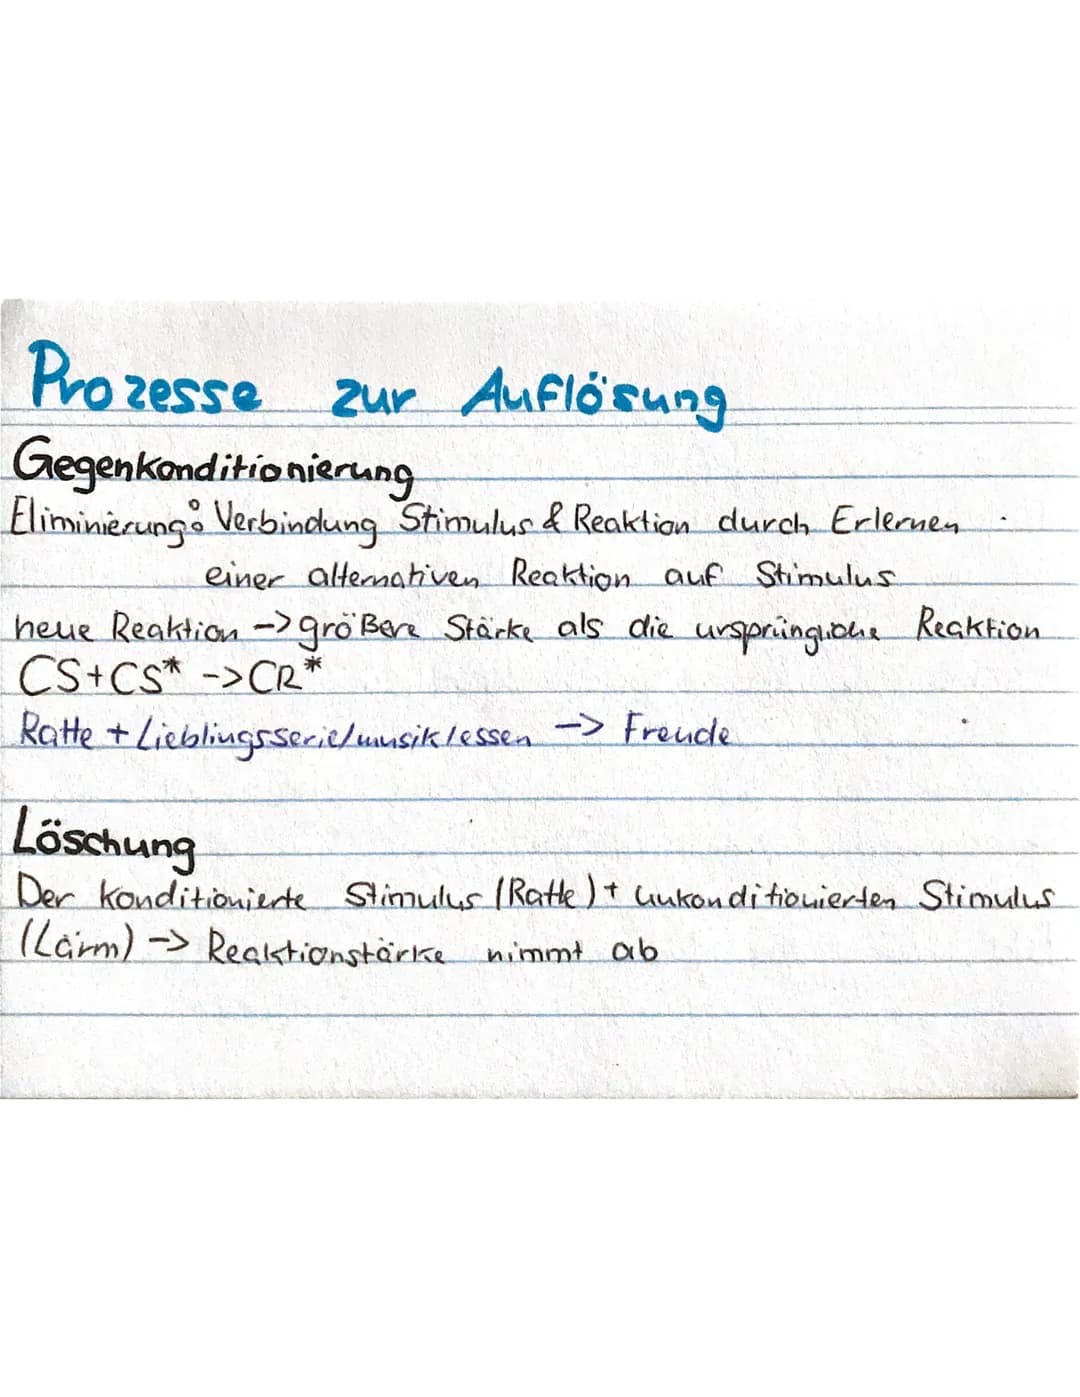 Prozesse zur Auflösung
Gegenkonditionierung
Eliminierung: Verbindung Stimulus & Reaktion durch Erlernen
einer alternativen Reaktion auf Stimulus
neue Reaktion -> größere Stärke als die ursprüngliche Reaktion
CS+CS* -> CR*
Ratte + Lieblingsserie/musik/essen -> Freude
Löschung
Der konditionierte Stimulus (Ratte) + unkonditionierten Stimulus
(Lärm) -> Reaktionstärke nimmt ab